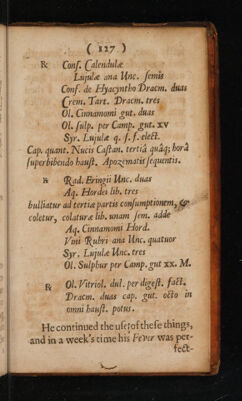 ( 127 )
℞ Conſ. Calendulæ
Lujulæ ana Unc. ſemis
Conſ. de Hyacyntho Dracm. duas
Crem. Tart. Dracm. tres
Ol. Cinnamomi gut. duas
Ol. ſulp. per Camp. gut. xv
Syr. Lujulæ q. ſ. f. elect.
Cap. quant. Nucis Caſtan. tertiâ quâq; horâ
ſuperbibendo hauſt. Apozematis ſequentis.
℞ Rad. Eringii Unc. duas
Aq. Hordei lib. tres
bulliatur ad tertiæ partis conſumptionem, &
coletur, colaturæ lib. unam ſem. adde
Aq. Cinnamomi Hord.
Vini Rubri ana Unc. quatuor
Syr. Lujulæ Unc. tres
Ol. Sulphur per Camp. gut xx. M.
℞ Ol. Vitriol. dul. per digeſt. fact.
Dracm. duas cap. gut. octo in
omni hauſt. potus.
He continued the uſe of theſe things,
and in a week's time his Fever was per-
fect-